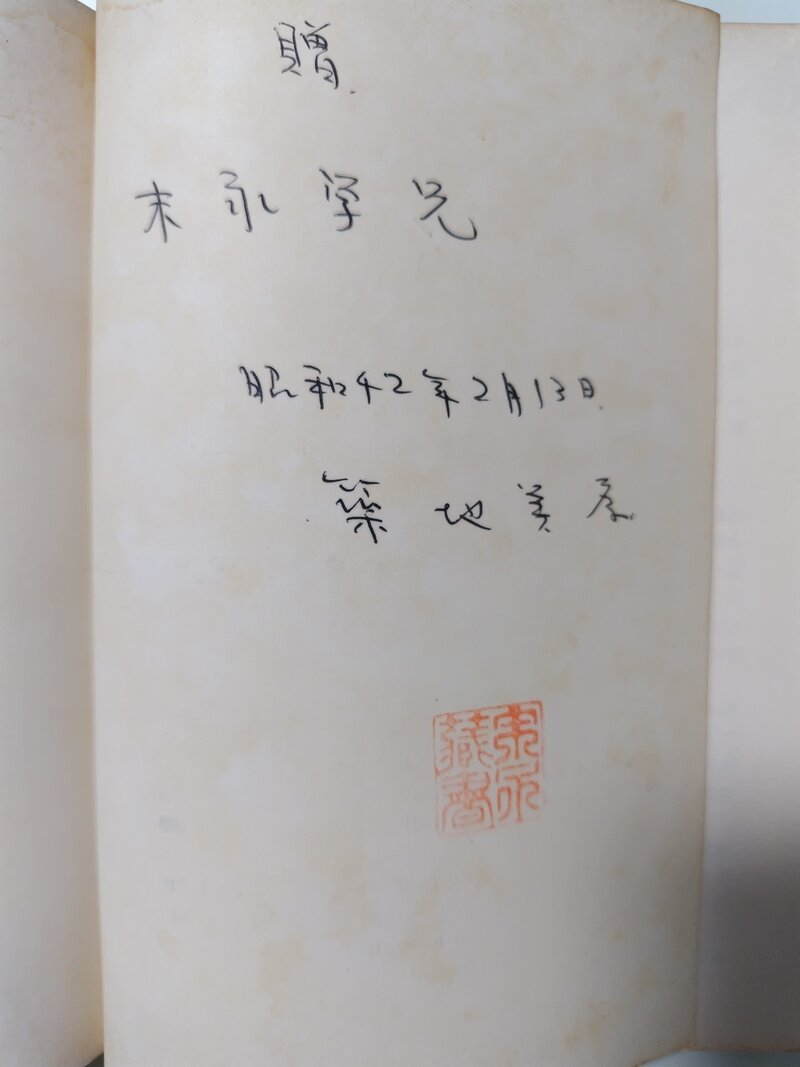 贈
末永学兄
昭和42年2月13日
築地美彦
末永
蔵書